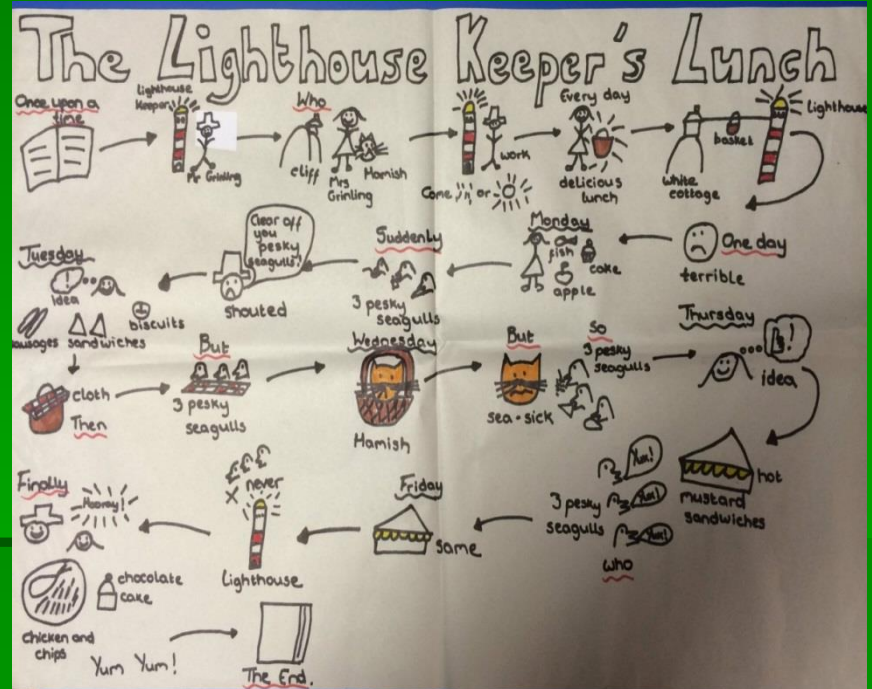 The Lighthouse Keeper's Lunch
Once upon a
time
lighthouse
Keeper
Mr Grinling
Who
cliff
Mrs
Grinling
Hamish
work
Come or
Every day
delicious
lunch
white
cottage
basket
lighthouse
One day
terrible
Monday
fish
cake
apple
Suddenly
3 pesky
seagulls
Clear off
you
pesky
seagulls!
shouted
Tuesday
idea
sausages sandwiches
biscuits
cloth
Then
But
3 pesky
seagulls
Wednesday
Hamish
But
sea-sick
So
3 pesky
seagulls
Thursday
idea
hot
mustard
sandwiches
Yuk!
Yuk!
Yuk!
3 pesky
seagulls
who
Friday
same
never
Lighthouse
Finally
Hooray!
chicken and
chips
chocolate
cake
Yum Yum!
The End.